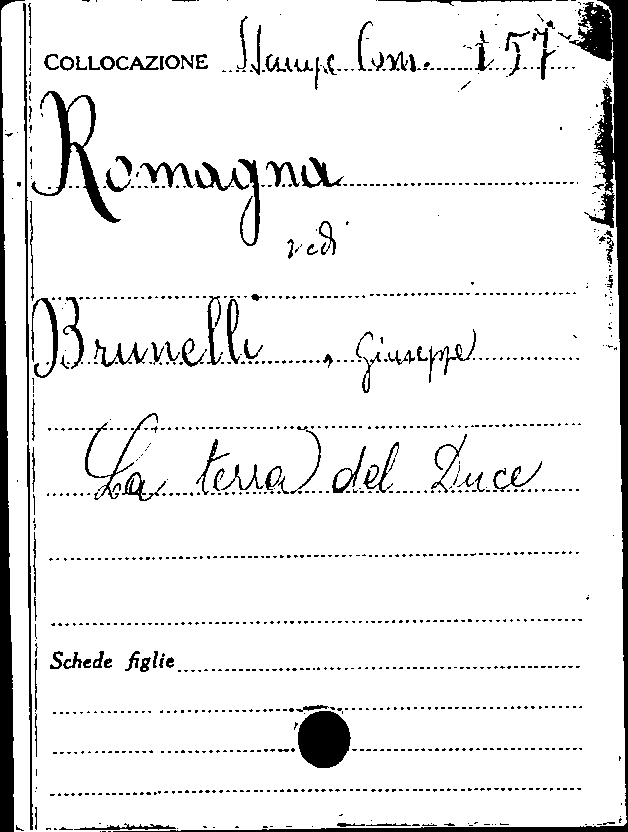 COLLOCAZIONE Stampe Com. 157
Romagna
vedi
Brunelli, Giuseppe
La terra del Duce
Schede figlie